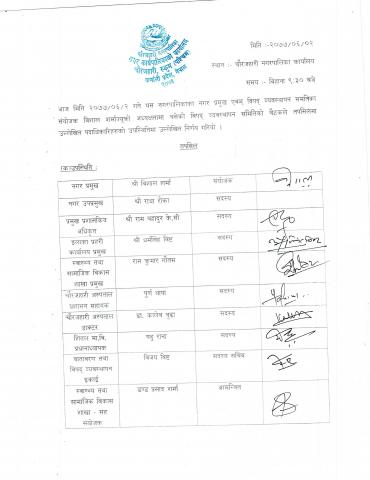 चौरजहारी नगरपालिका
नगर कार्यपालिकाको कार्यालय
चौरजहारी, रुकुम (पश्चिम)
कर्णाली प्रदेश, नेपाल
मिति :-२०७७/०६/०२
स्थान :- चौरजहारी नगरपालिका कार्यालय
समय :- बिहान ९:३० बजे
आज मिति २०७७/०६/२ गते यस नगरपालिकाका नगर प्रमुख एवम् विपद् व्यवस्थापन समितिका
संयोजक विशाल शर्माज्यूको अध्यक्षतामा बसेको विपद् व्यवस्थापन समितिको बैठकले तपसिलमा
उल्लेखित पदाधिकारीहरुको उपस्थितिमा उल्लेखित निर्णय गरियो ।
तपसिल
(क)उपस्थिति :
नगर प्रमुख श्री विशाल शर्मा संयोजक
नगर उपप्रमुख श्री राधा रोका सदस्य
प्रमुख प्रशासकिय श्री राम बहादुर के.सी सदस्य
अधिकृत
इलाका प्रहरी श्री धर्मसिंह विष्ट सदस्य
कार्यालय प्रमुख
स्वास्थ्य तथा राम कुमार गौतम सदस्य
सामाजिक विकास
शाखा प्रमुख
चौरजहारी अस्पताल पूर्ण थापा सदस्य
प्रशासन सहायक
चौरजहारी अस्पताल डा. कालेव बुढा सदस्य
डाक्टर
शितल मा.वि. सदस्य
प्रधानाध्यापक
वातावरण तथा विजय विष्ट सदस्य सचिव
विपद् व्यवस्थापन
इकाई
स्वास्थ्य तथा प्रसाद शर्मा आमन्त्रित
सामाजिक विकास
शाखा - सह
संयोजक